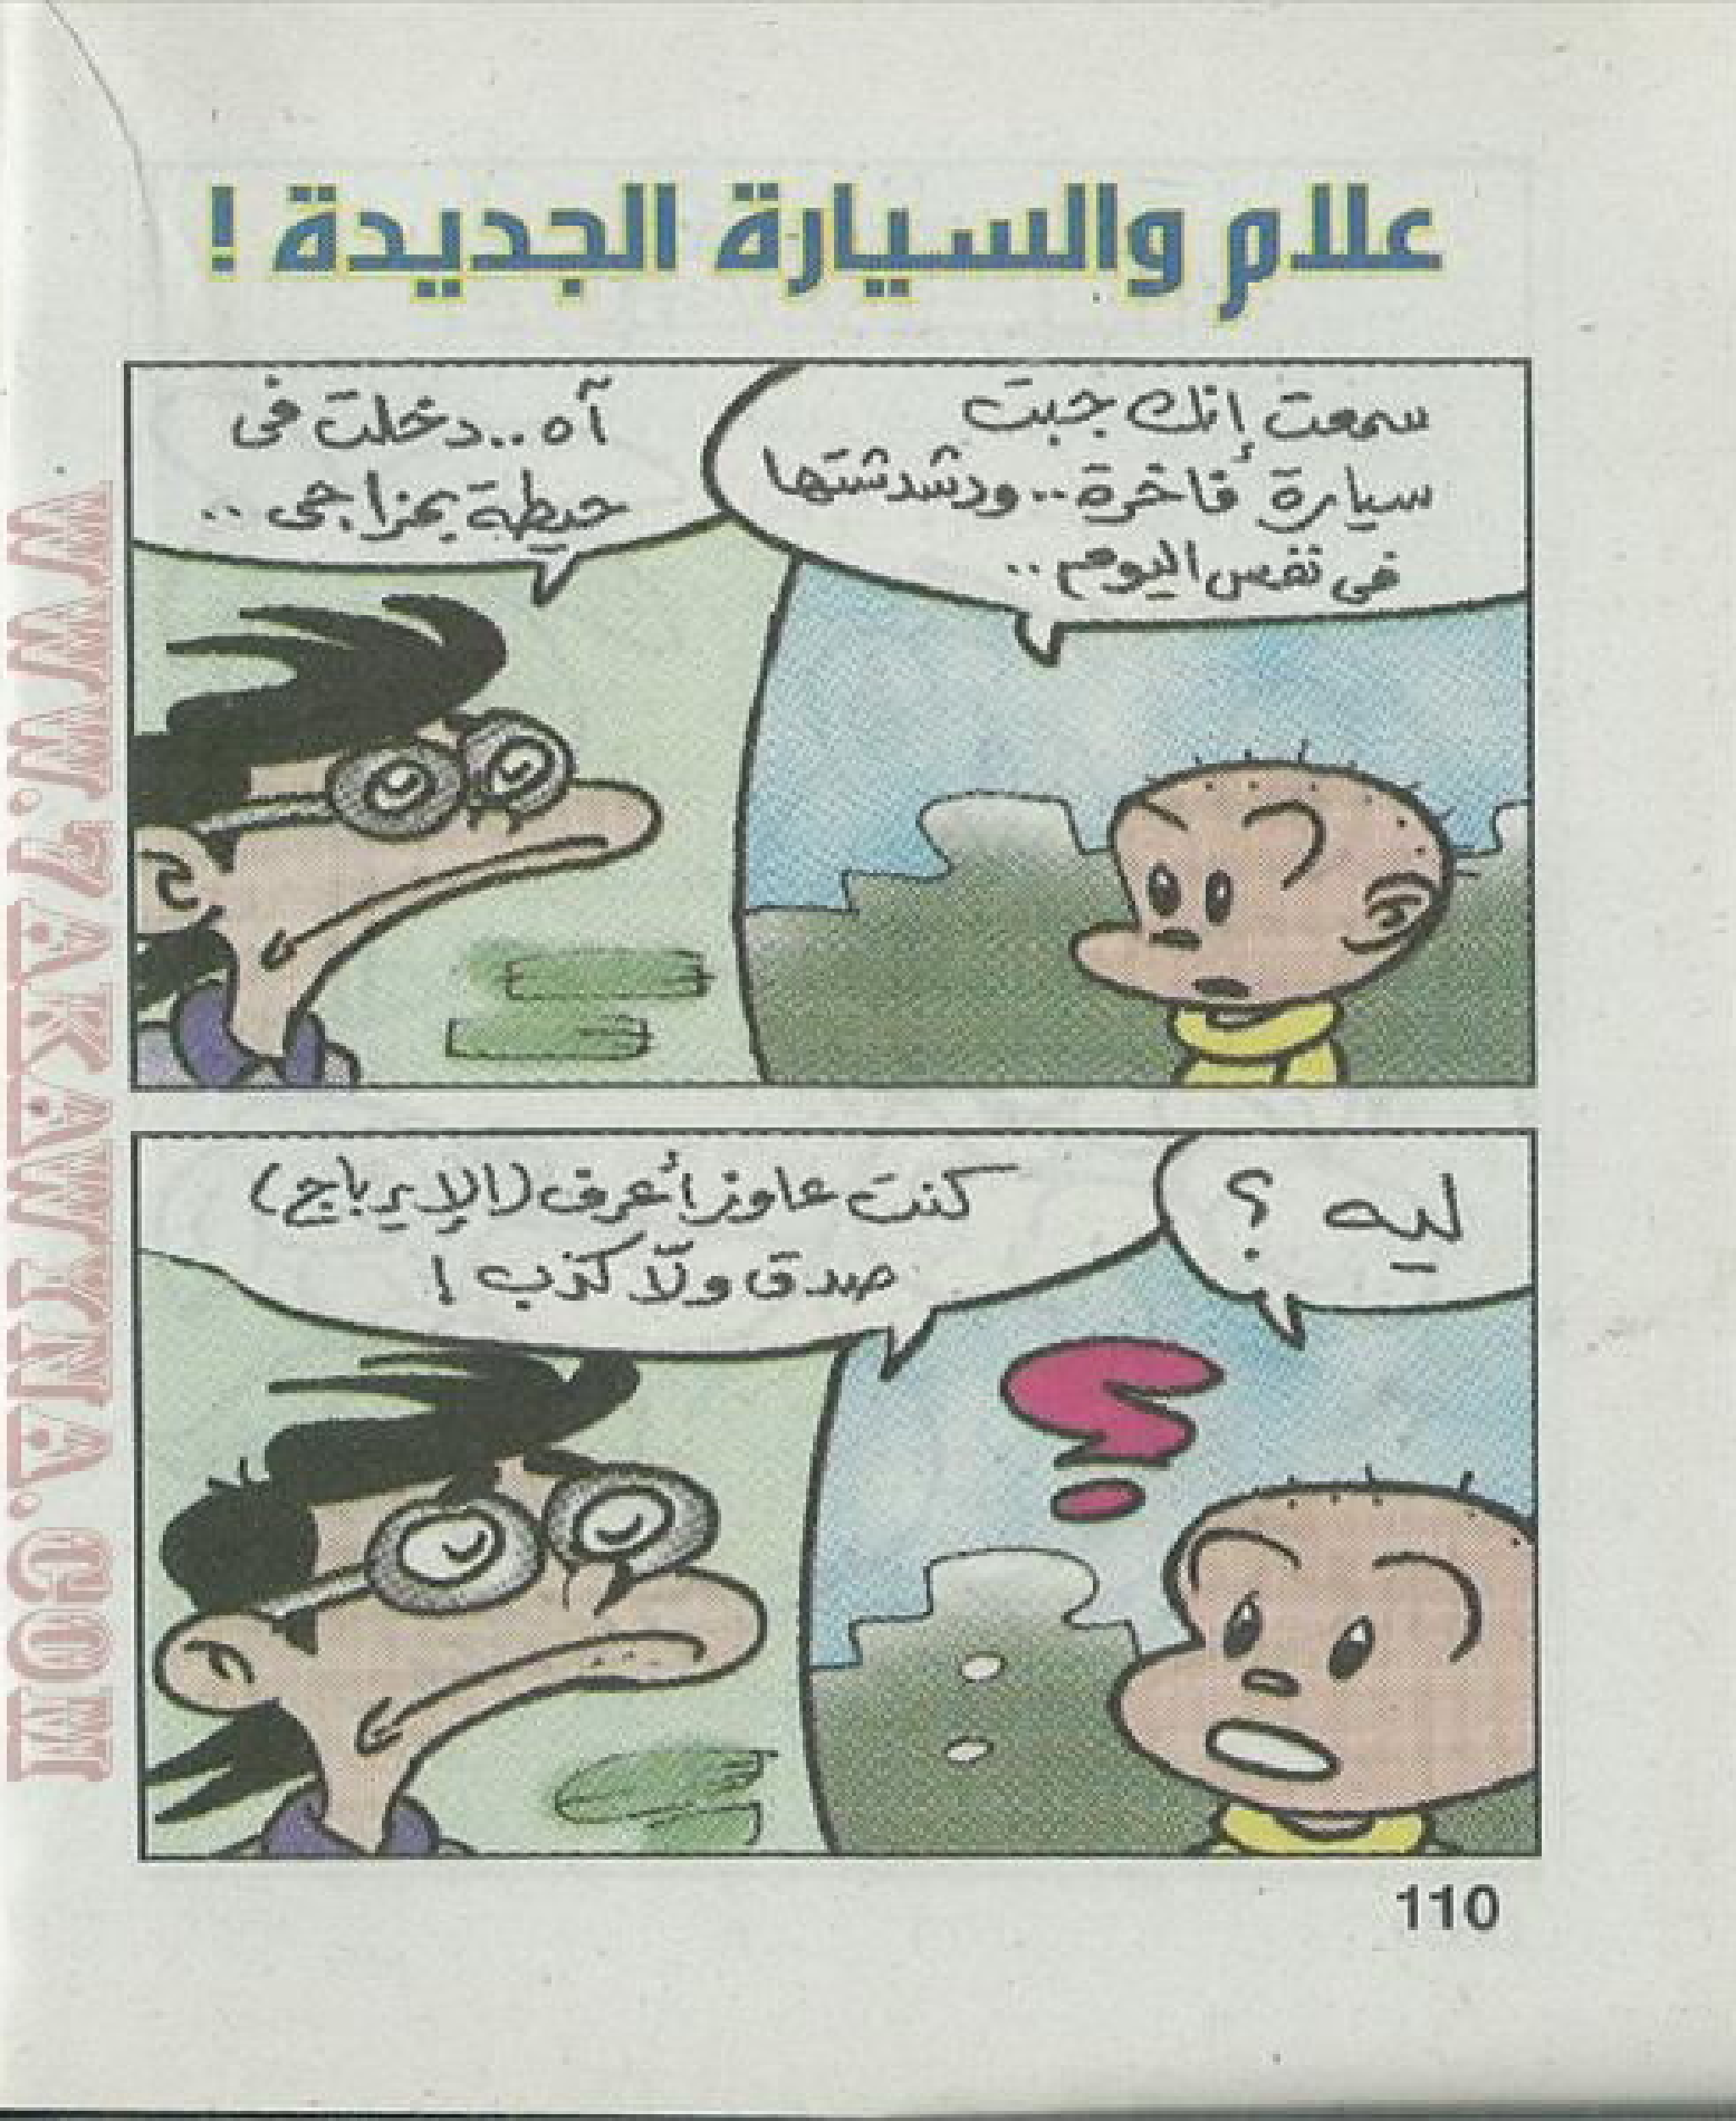 علام والسيارة الجديدة !
سمعت إنك جبت
سيارة فاخرة .. ودشدشتها
فى نفس اليوم ..
آه .. دخلت فى
حيطة بمزاجى ..
ليه ؟
كنت عاوز أعرف (الإيرباج)
صدق ولّا كذب !
110
WWW.7AKAWIINA.COM